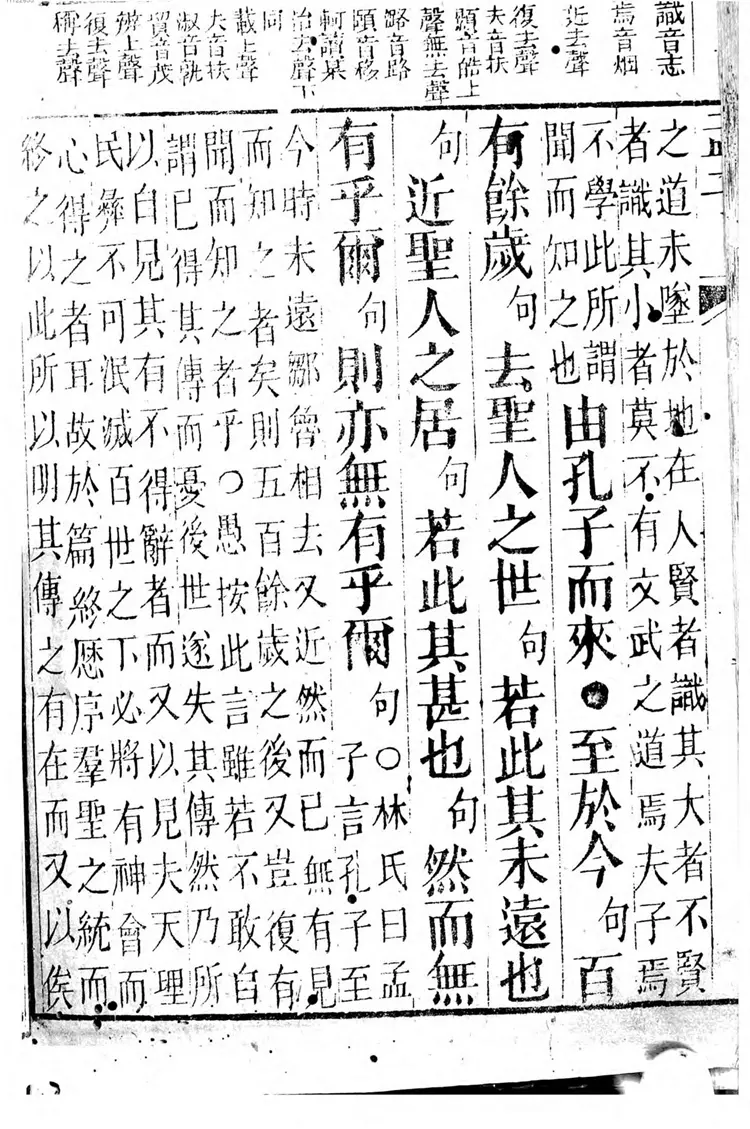 識音志
焉音烟
近去聲
復去聲
夫音扶
顥音皓上
聲無去聲
潞音路
頤音移
軻讀某
治去聲下
同
載上聲
夫音扶
淑音孰
貿音茂
辨上聲
復去聲
稱去聲
之道未墜於地在人賢者識其大者不賢
者識其小者莫不有文武之道焉夫子焉
不學此所謂
聞而知之也
由孔子而來●至於今句百
有餘歲句去聖人之世句若此其未遠也
句近聖人之居句若此其甚也句然而無
有乎爾句則亦無有乎爾句○林氏曰孟
子言孔子至
今時未遠鄒魯相去又近然而已無有見
而知之者矣則五百餘歲之後又豈復有
聞而知之者乎○愚按此言雖若不敢自
謂已得其傳而憂後世遂失其傳然乃所
以自見其有不得辭者而又以見夫天理
民彝不可泯滅百世之下必將有神會而
心得之者耳故於篇終歷序羣聖之統而
終之以此所以明其傳之有在而又以俟